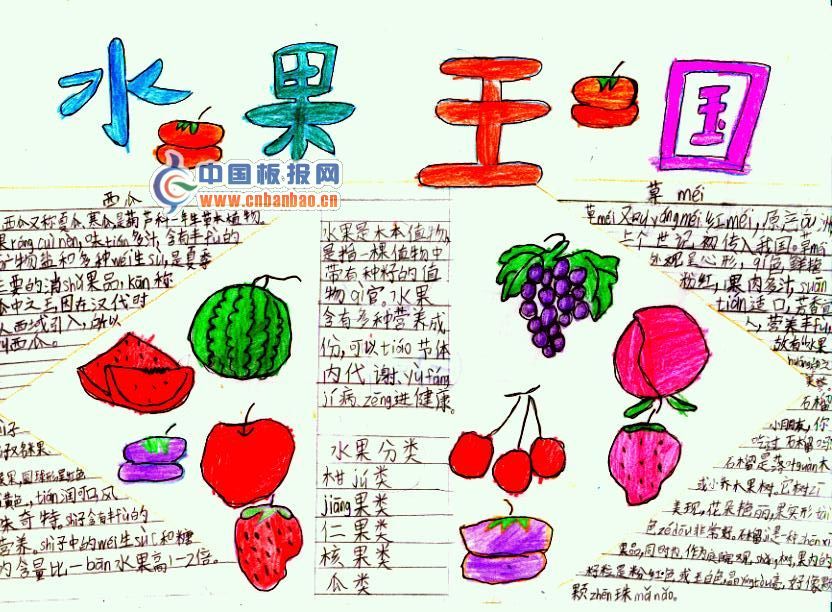 水果王国
中国板报网
www.cnbanbao.cn
西瓜
西瓜又称夏瓜、寒瓜是葫芦科一年生草本植物
果róng cuì nèn, 味tián多汁, 含有丰fù的
矿物盐和多种wéi生sù, 是夏季
主要的消shǔ果品, kān称
瓜中之王因在汉代时
从西域引入, 所以
叫西瓜。
水果是木本值物,
是指一棵值物中
带有种籽的值
物qì官。水果
含有多种营养成
份, 可以tiáo节体
内代谢、yù fáng
jí病、zēng进健康。
水果分类
柑jú类
jiāng果类
仁果类
核果类
瓜类
草méi
草méi又叫yáng méi红méi, 原产ōu洲
上个世记初传入我国。草méi
外观呈心形,
粉红, 果内多汁suān
tián适口, 芳香
人, 营养丰fù
故有“水果
huáng后”之
美称
石榴
小朋友, 你
吃过石榴吗
石榴是落叶guàn木
或小乔木果树, 它树zī
美现, 花朵艳丽, 果实形tài
色zé dōu非常
籽粒是粉红色或玉白色
颗zhēn珠mǎ nǎo。
shì子
润
朱奇特, shì子含有丰fù的
营养。shì子中的wéi生sù C和糖
的含量比一bān水果高1-2倍。